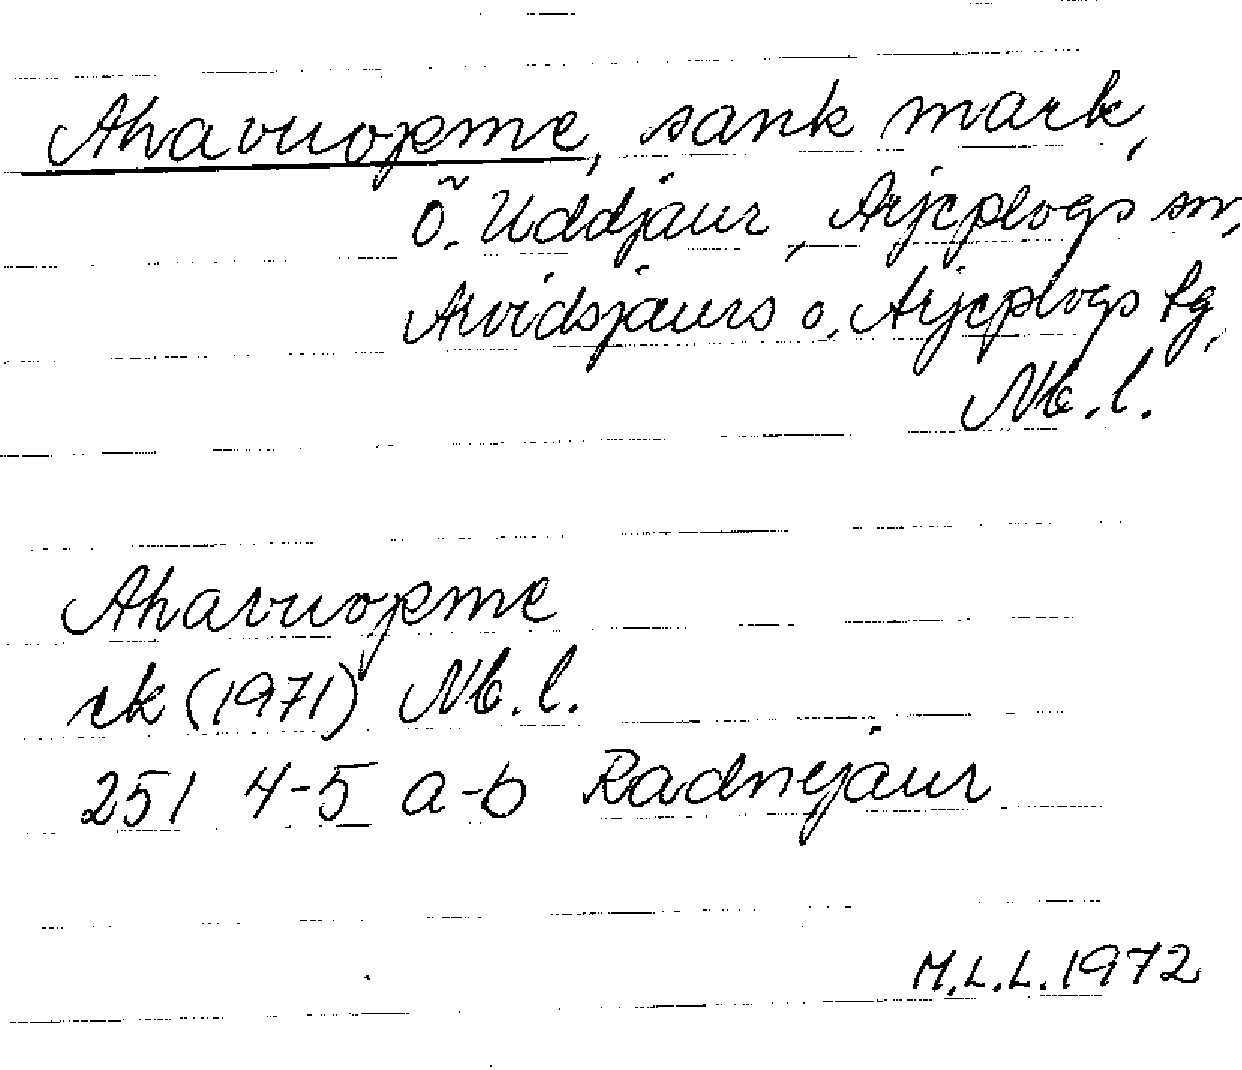 Ahavuopme, sank mark,
Ö. Uddjaur, Arjeplogs sn,
Arvidsjaurs o. Arjeplogs tg,
Nb. l.
Ahavuopme
rk (1971) Nb. l.
251 4-5 a-b Radnejaur
M.L.L. 1972